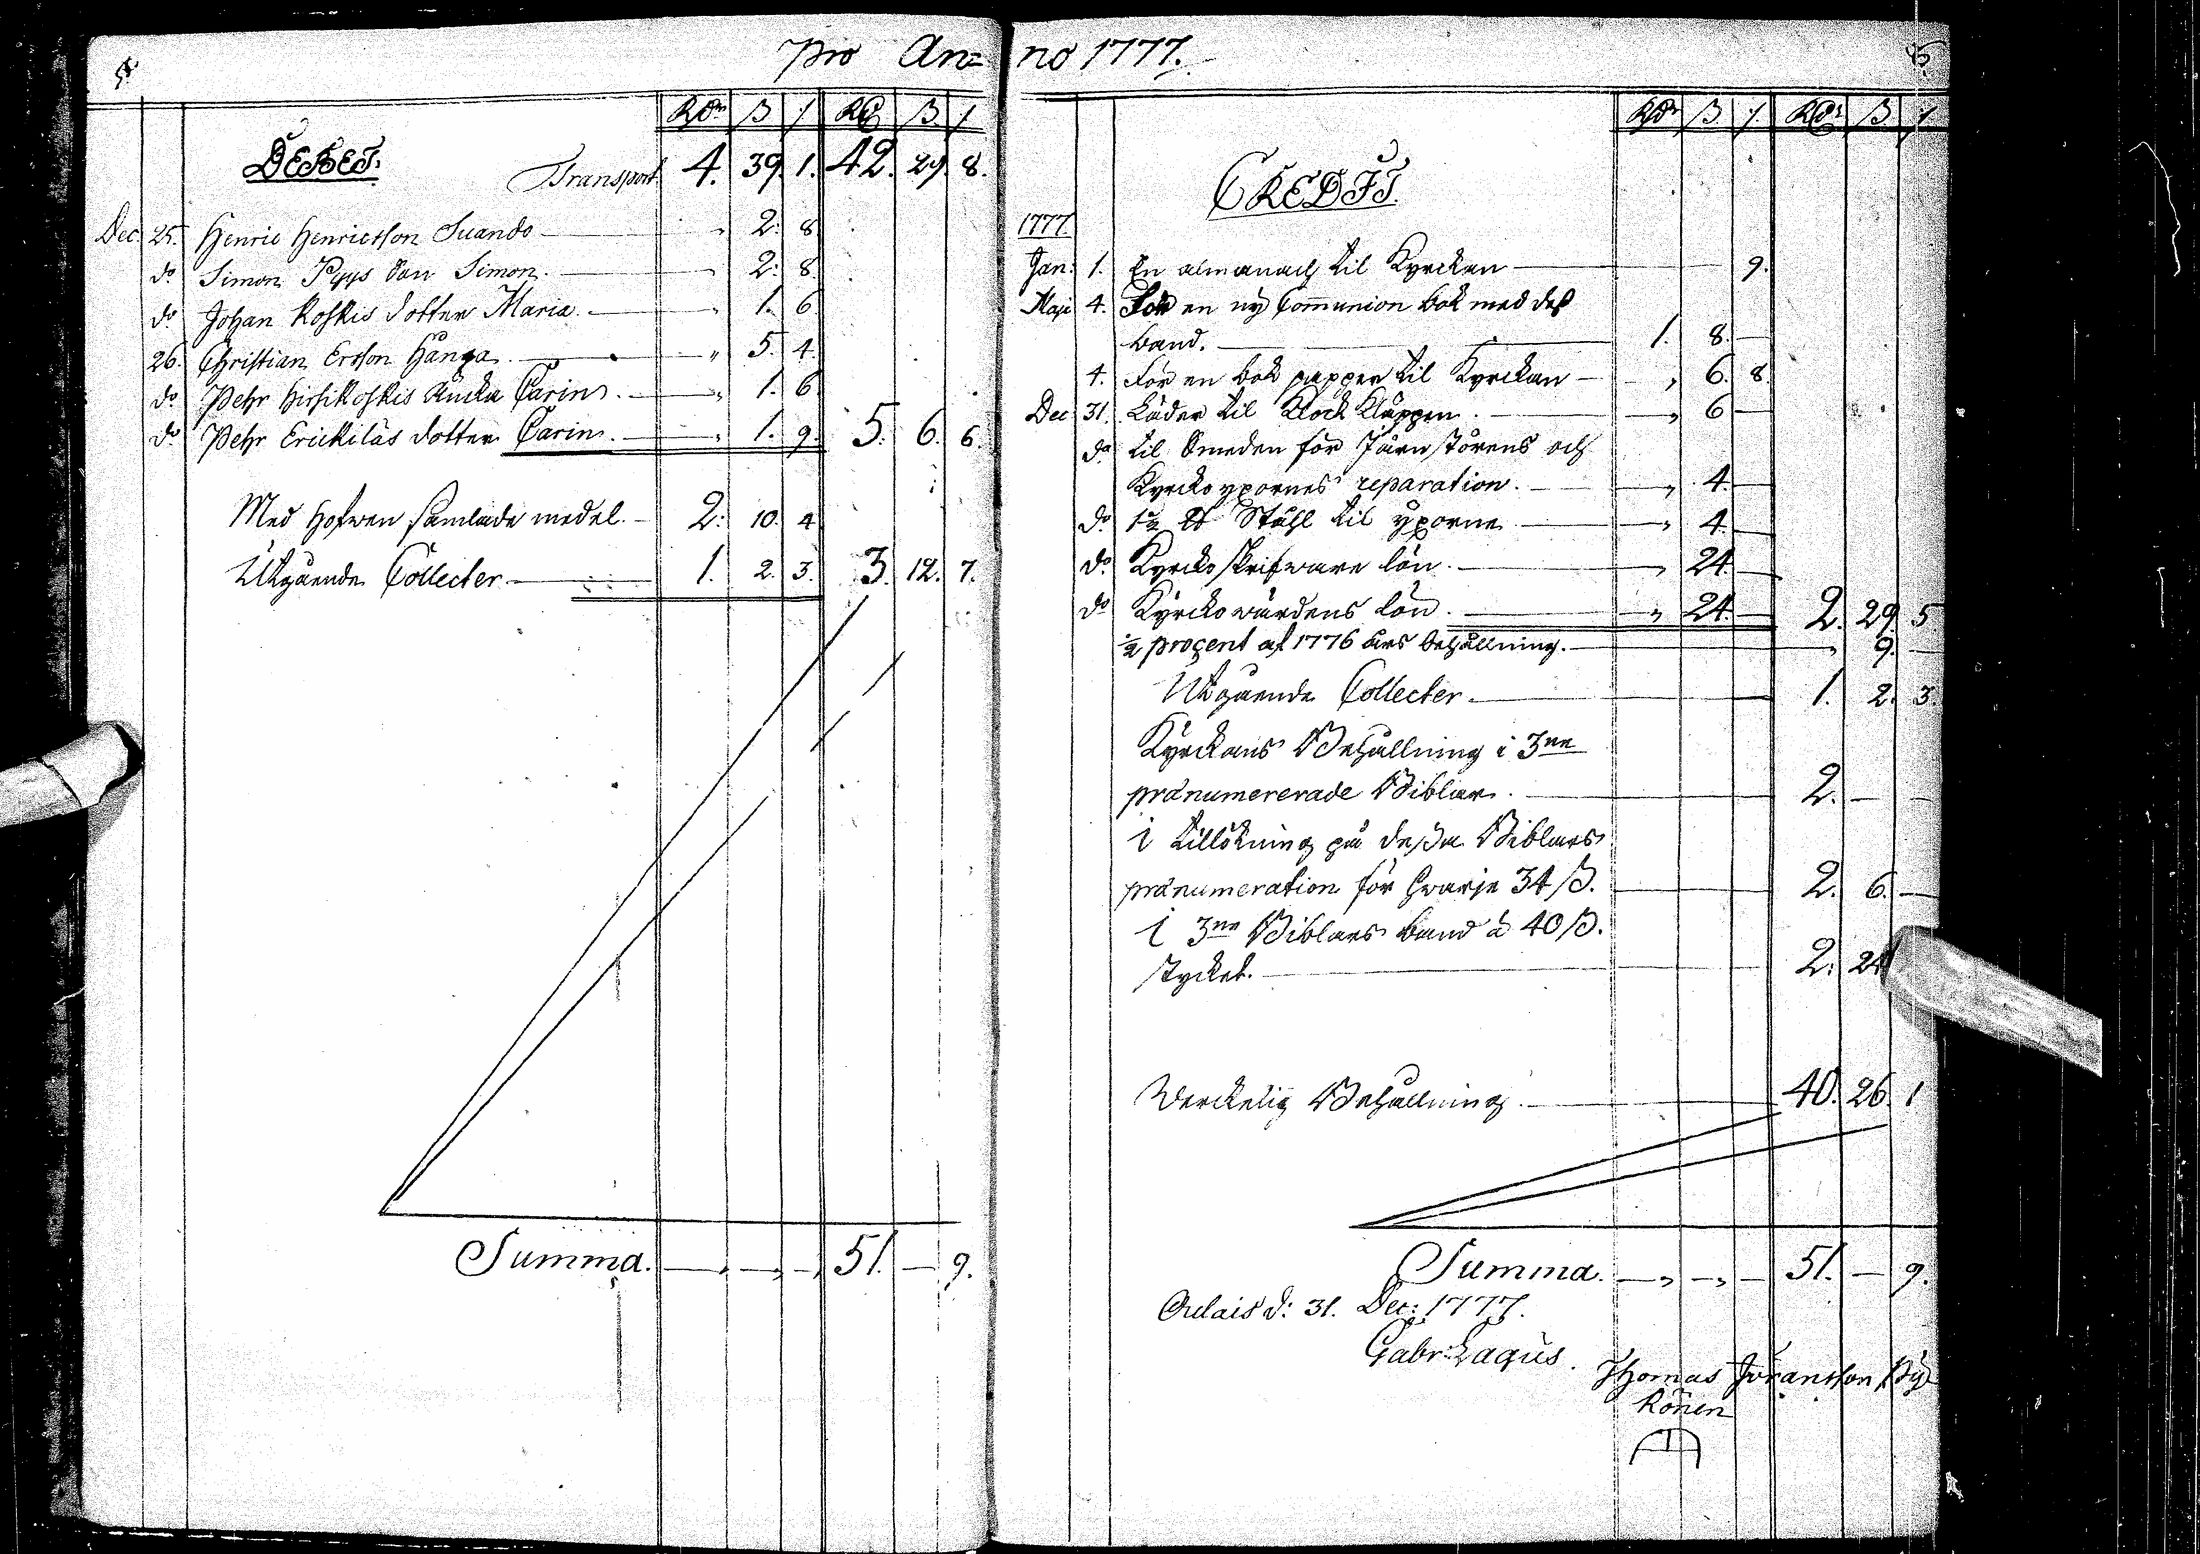 Pro An=
no 1777.
5.
Rdr ß / Rd ß /
DEBET.
Transport 4. 39. 1. 42. 29. 8.
Dec. 25. Henric Henricsson Suando — „ 2. 8.
do Simon Pyys Son Simon. — „ 2. 8.
do Johan Koskis dotter Maria. — „ 1. 6.
26. Christian Ersson Hånga. — „ 5. 4.
do Pehr Hirsikoskis Änka Carin. — „ 1. 6.
do Pehr Erickiläs dotter Carin. — „ 1. 9. 5. 6. 6.
Med Hofwen samlade medel. — 2. 10. 4
Utgående Collecter — 1. 2. 3. 3. 12. 7.
Summa. — „ — „ — „ 51. — 9.
5.
Rdr ß / Rdr ß /
CREDIT.
1777.
Jan. 1. En almanach til Kyrckan — 9.
Maji 4. För en ny Communion bok med dess
band. — 1. 8. —
4. För en bok papper til Kyrckan — „ 6. 8.
Dec 31. Läder til Klock Kläppen. — „ 6 —
do til Smeden för Järn störens och
Kyrcko yxornes reparation. — „ 4. —
do 1/2 ℔ Stähl til yxorne — „ 4. —
do Kyrcko skrifware lön. — „ 24. —
do Kyrcko wärdens lön. — „ 24. — 2. 29. 5
1/2 procent af 1776 års behållning. — „ 9. —
Utgående Collecter. — 1. 2. 3.
Kyrckans Behållning i 3ne
pränumererade Biblar. — 2. — —
i tillökning på dessa Biblars
pränumeration för hwarje 34 ß. — 2. 6. —
i 3ne Biblars band à 40 ß.
stycket. — 2. 24
Werckelig Behållning. — 40. 26. 1
Summa. — „ — „ — 51. — 9.
Oulais d: 31. Dec: 1777.
Gabr: Lagus.
Thomas Jöransson Py
könen